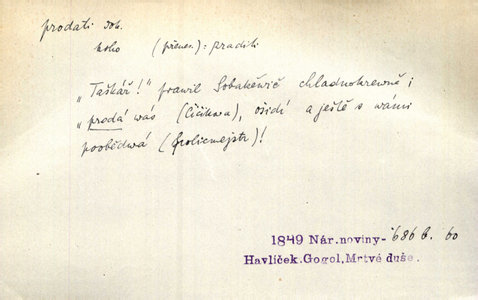 prodati dok.
koho (přenes.): zraditi
„Taškář!" prawil Sobakěwič chladnokrewně;
„prodá wás (Čičikwa), ošidí a ještě s wámi
poobědwá (policmejstr)!
1849 Nár. noviny- 686 b. 60
Havlíček. Gogol, Mrtvé duše.